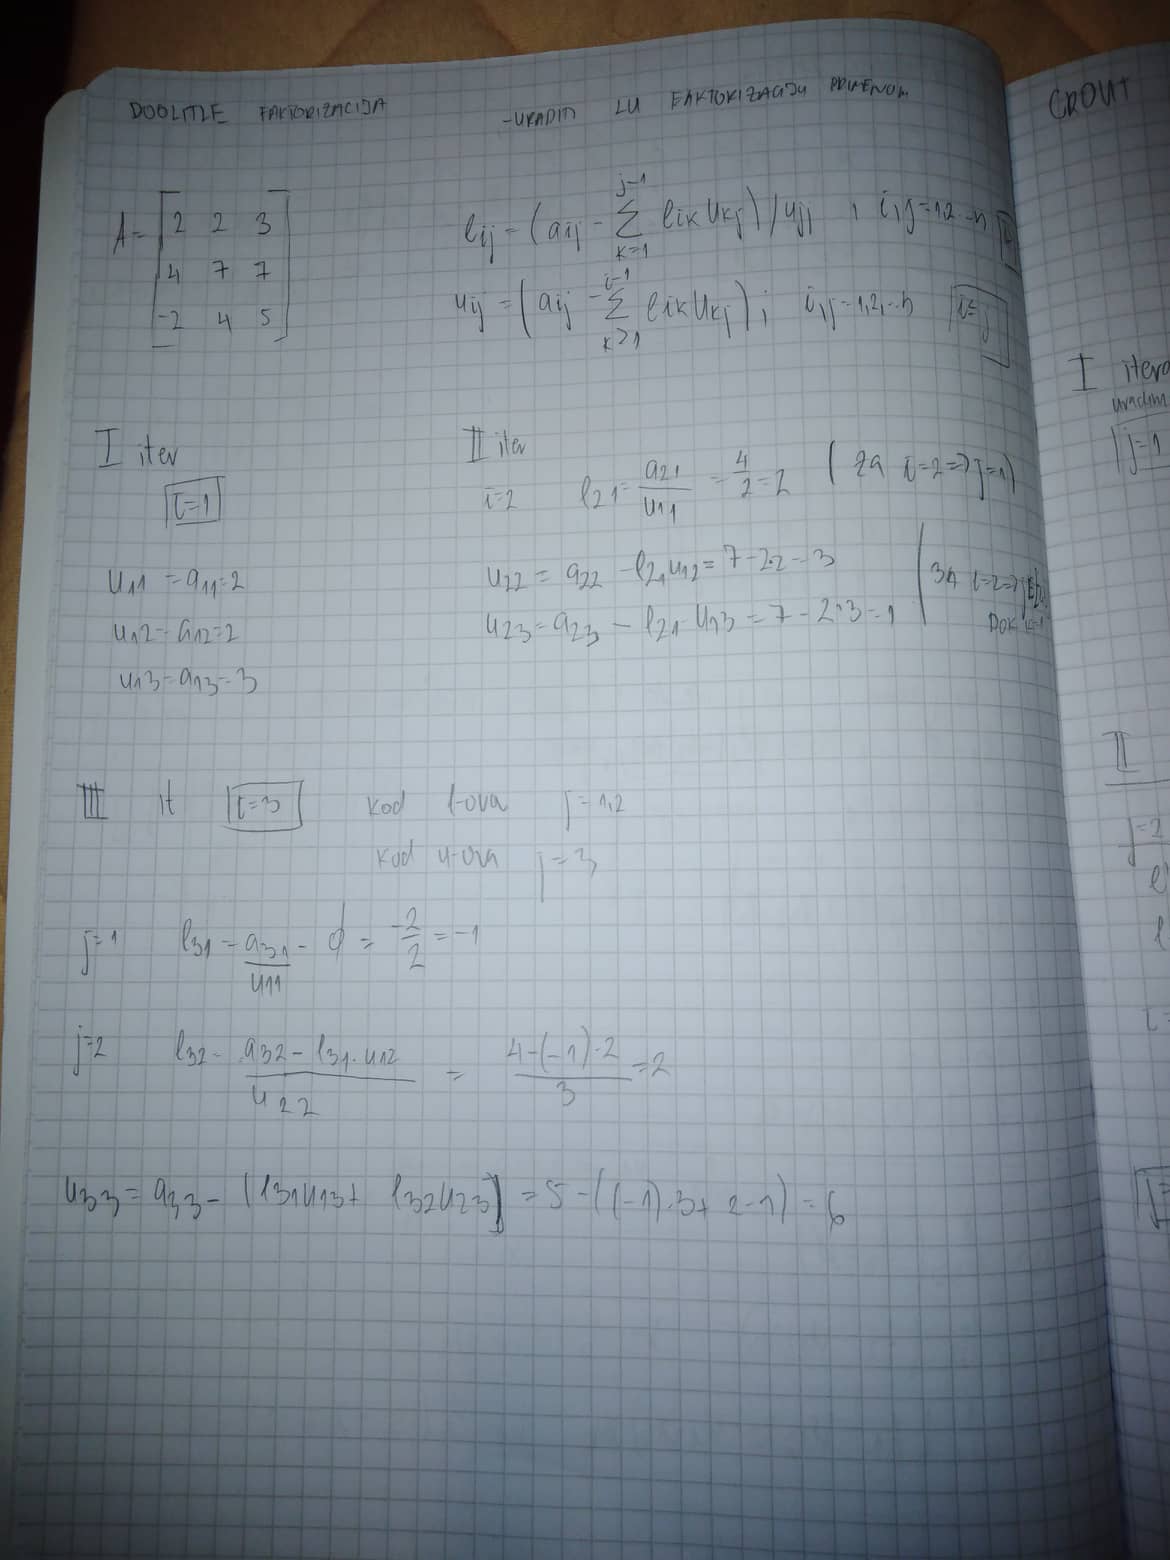 DOOLITLE FAKTORIZACIJA
-URADITI LU FAKTORIZACIJU PRIMENOM
CROUT
A = [2 2 3
4 7 7
-2 4 5]
lij = (aij - Σ k=1 j-1 lik ukj)/ujj , i,j=1,2 - n
uij = (aij - Σ k=1 i-1 lik ukj); i,j=1,2,-n
I iter
i=1
u11 = a11=2
u12 = a12=2
u13 = a13=3
II iter
i=2 l21 = a21/u11 = 4/2 = 2 (za i=2 => j=1)
u22 = a22 - l21u12 = 7-2·2 = 3
u23 = a23 - l21·u13 = 7-2·3 = 1
ZA i=2 =>
III it i=3 kod l-ova j=1,2
kod u-ova j=3
j=1 l31 = a31/u11 - ϕ = -2/2 = -1
j=2 l32 = a32 - l31·u12/u22 = 4-(-1)·2/3 = 2
u33 = a33 - (l31u13 + l32u23) = 5 - ((-1)·3 + 2·1) = 6
I itera
uradim
j=1
II
j=2